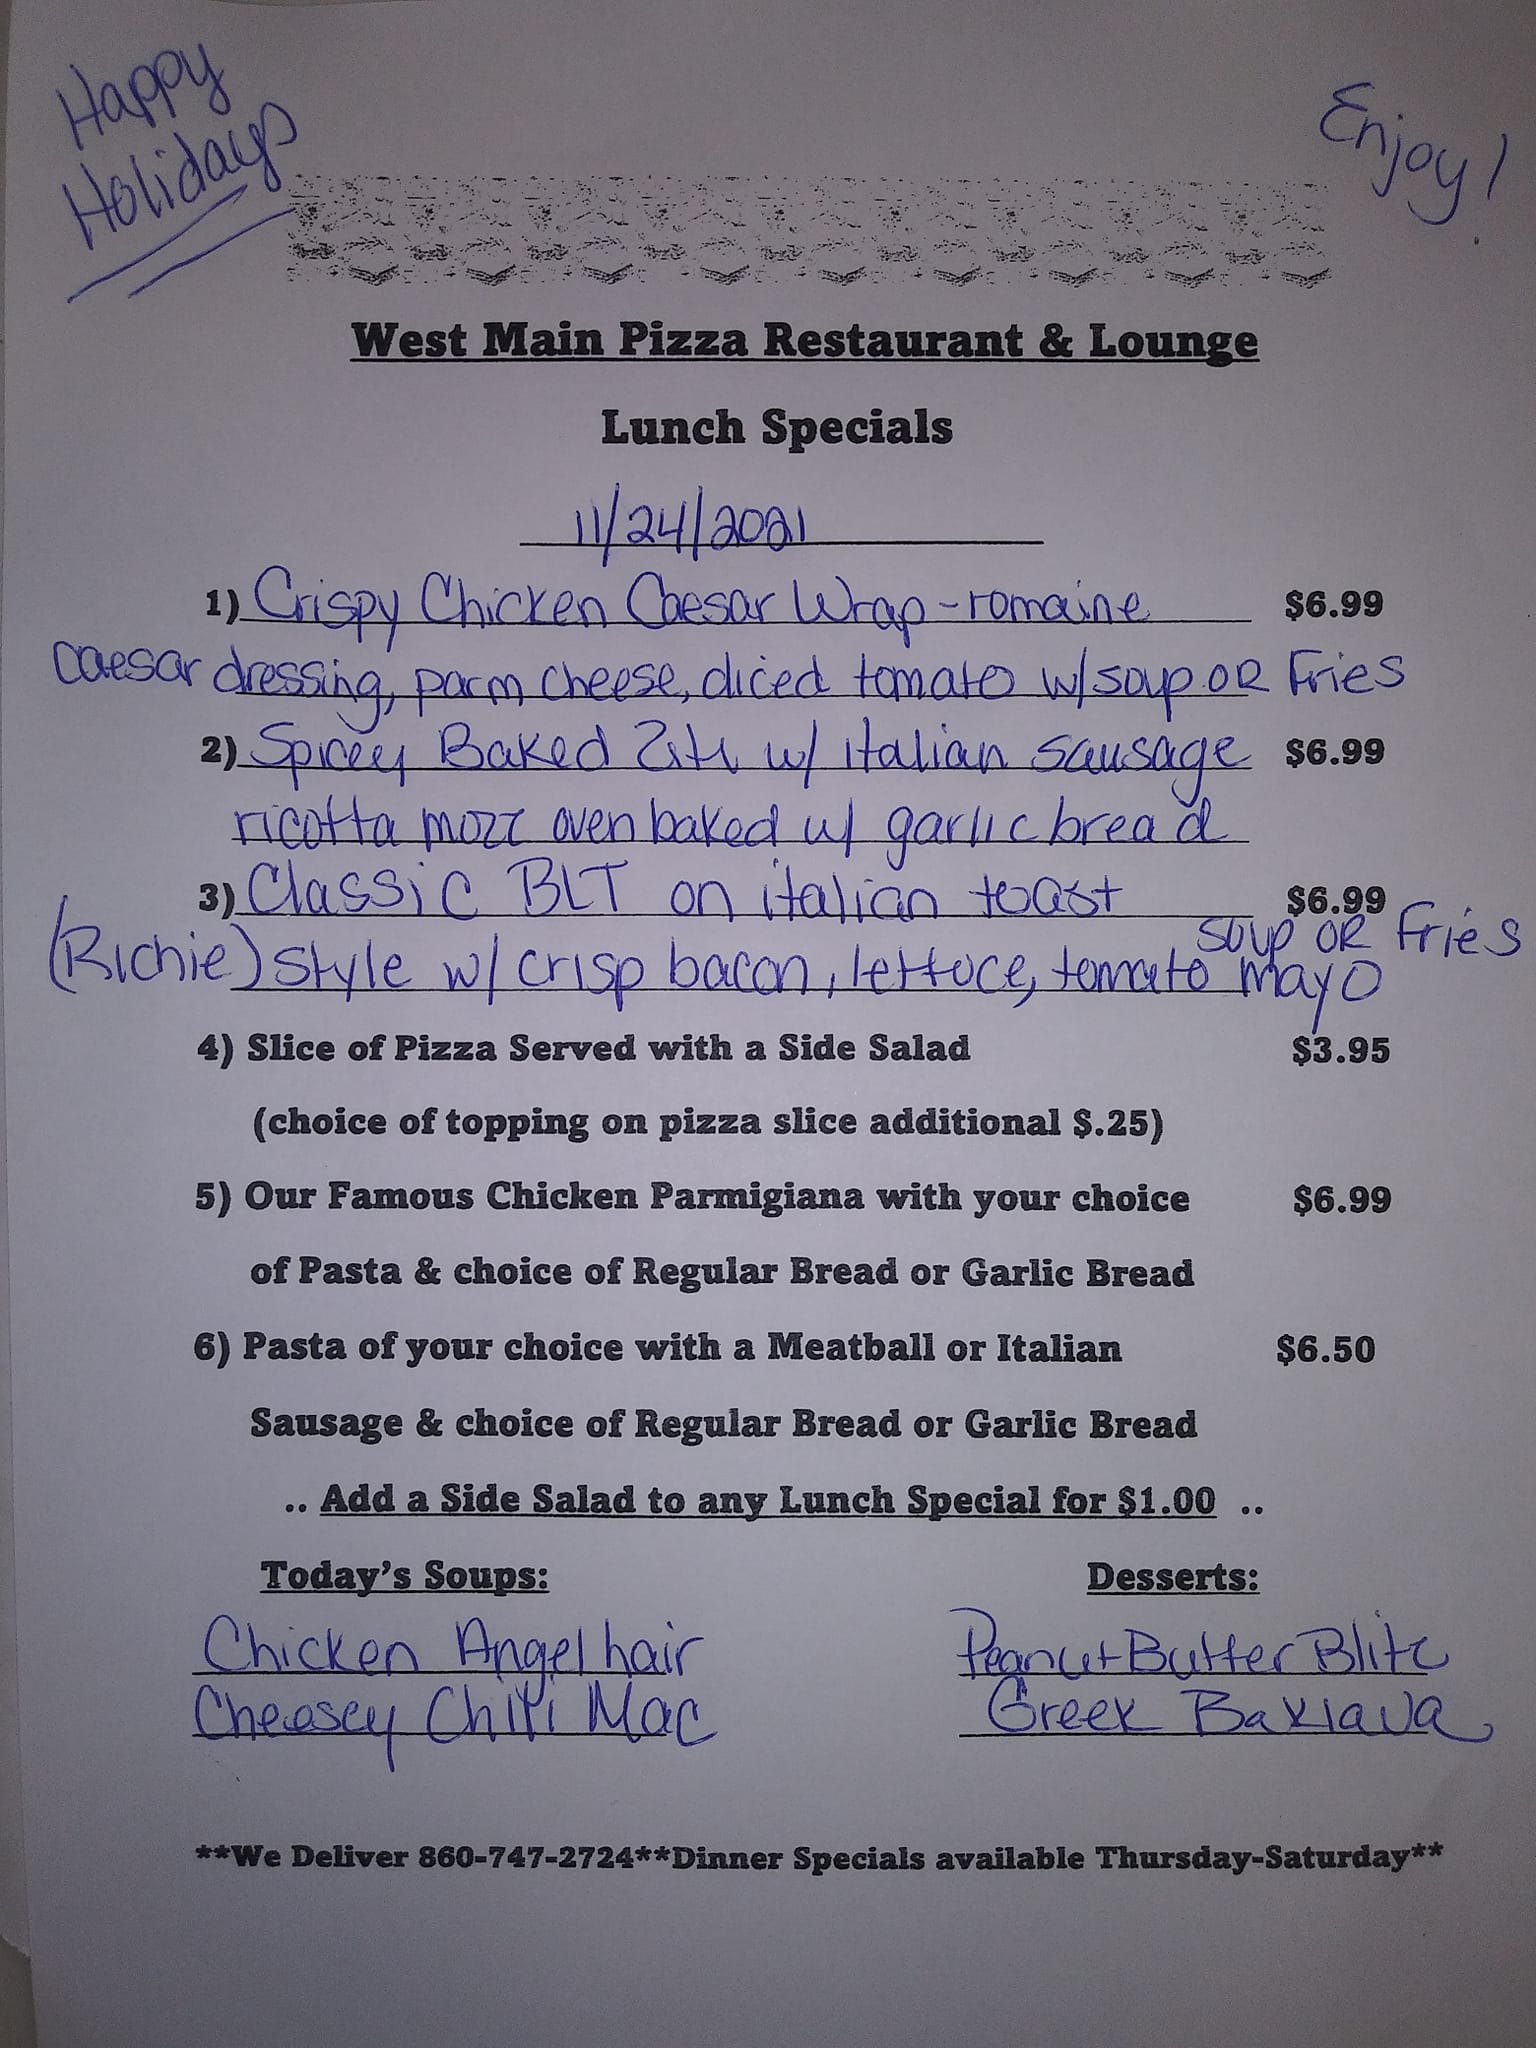 Happy
Holidays
Enjoy!
West Main Pizza Restaurant & Lounge
Lunch Specials
11/24/2021
1) Crispy Chicken Caesar Wrap - romaine $6.99
caesar dressing, parm cheese, diced tomato w/ soup OR Fries
2) Spicey Baked Ziti w/ italian sausage $6.99
ricotta mozz oven baked w/ garlic bread
3) Classic BLT on italian toast $6.99
soup OR Fries
(Richie) style w/ crisp bacon, lettuce, tomato mayo
4) Slice of Pizza Served with a Side Salad $3.95
(choice of topping on pizza slice additional $.25)
5) Our Famous Chicken Parmigiana with your choice $6.99
of Pasta & choice of Regular Bread or Garlic Bread
6) Pasta of your choice with a Meatball or Italian $6.50
Sausage & choice of Regular Bread or Garlic Bread
.. Add a Side Salad to any Lunch Special for $1.00 ..
Today's Soups: Desserts:
Chicken Angel hair Peanut Butter Blitz
Cheesey Chili Mac Greek Baklava
**We Deliver 860-747-2724**Dinner Specials available Thursday-Saturday**